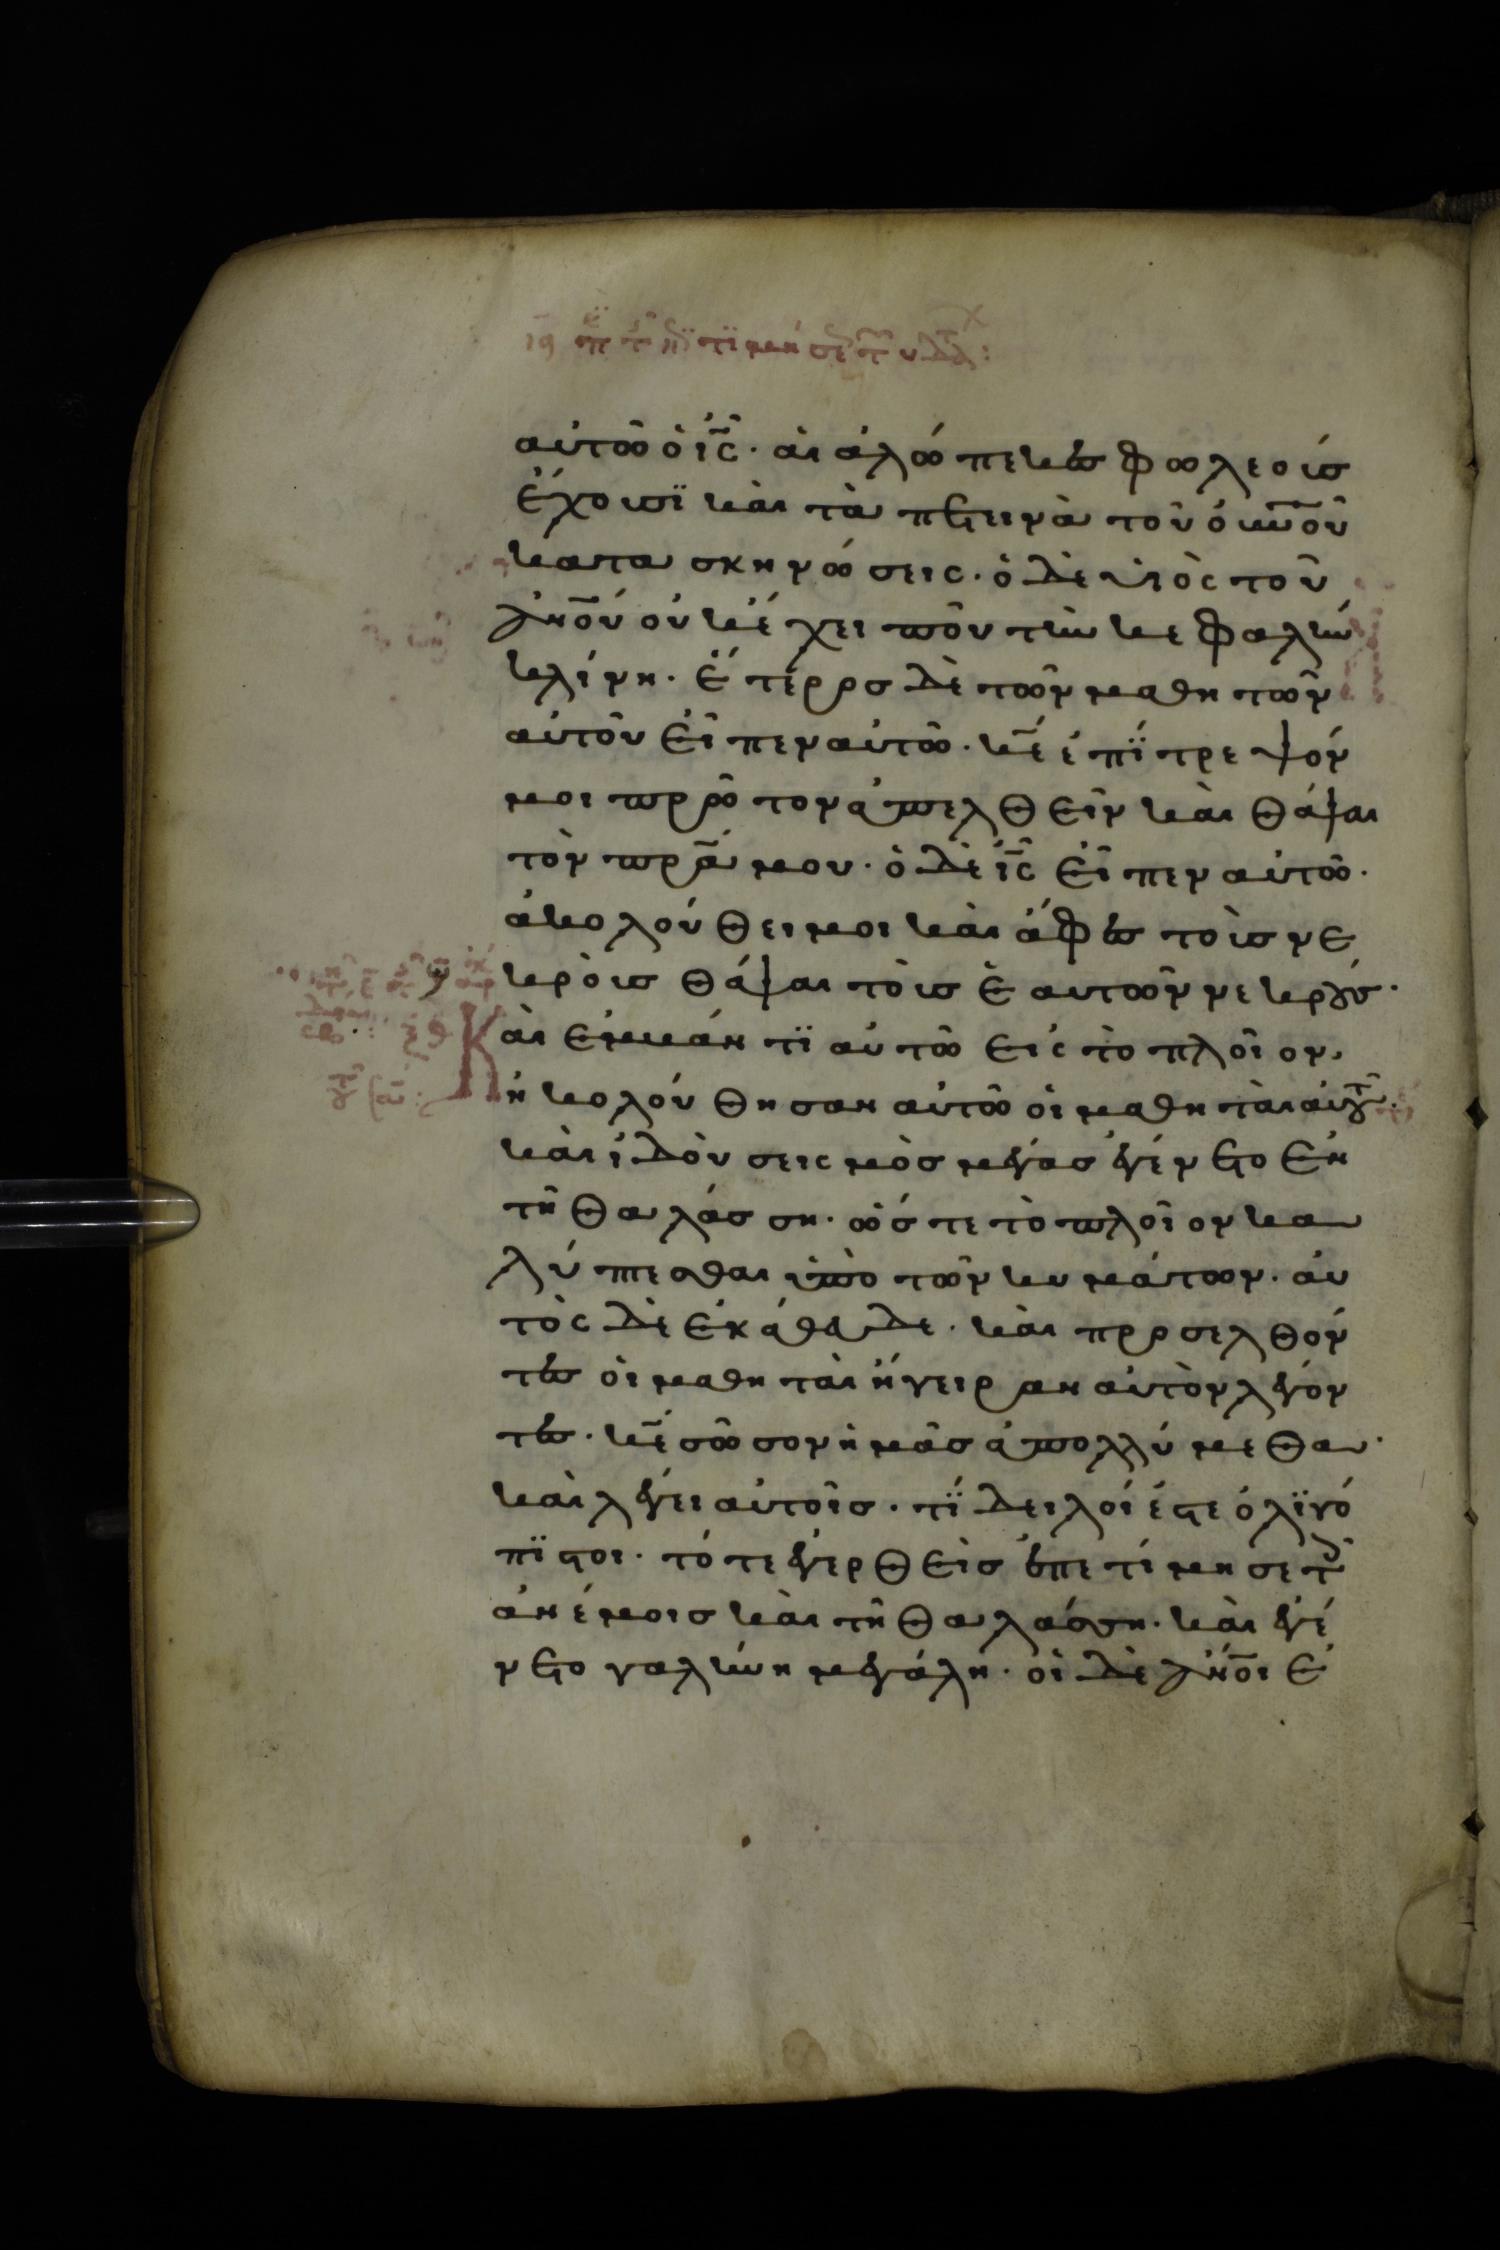 αὐτῶ ὁ ις̅· ἁι ἀλώπεκες φωλεοὺς
ἔχουσϊ κὰι τὰ πετεινὰ τοῦ ὀυνο̅υ
κατασκηνώσεις· ὁ δὲ υἱὸς τοῦ
ἀνο̅υ οὐκ έχει ποῦ τὴν κεφαλὴν
κλίνη· ἕτερος δὲ τῶν μαθητῶν
αὐτοῦ εἶπεν αὐτῶ· κε̅ ἐπΐτρεψόν
μοι πρῶτον ἀπελθεῖν κὰι θάψαι
τὸν πρ̅α μου· ὁ δὲ ις̅ εἶπεν αὐτῶ·
ἀκολούθει μοι κὰι ἄφες τοὺς νε
κροὺς θάψαι τοὺς ἑαυτῶν νεκρούς·
Κὰι ἐμβάντϊ αὐτῶ εἰς τὸ πλοῖον,
ἠκολούθησαν αὐτῶ ὁι μαθητὰι αὐτοῦ·
κὰι ἰδοὺ σεισμὸς μέγας ἐγένετο ἐν
τῆ θαλάσση· ὥστε τὸ πλοῖον κα
λύπτεσθαι ὑπὸ τῶν κυμάτων· ἀυ
τὸς δὲ ἐκάθευδε· κὰι προσελθόν
τες ὁι μαθητὰι ἤγειραν αὐτὸν λέγον
τες· κε̅ σῶσον ἡμᾶς ἀπολλύμεθα·
κὰι λέγει αὐτοῖς· τΐ δειλοί ἐστε ὀλϊγό
πϊστοι· τότε ἐγερθεὶς ἐπετίμησε τοῖς
ἀνέμοις κὰι τῆ θαλάσση· κὰι ἐγέ
νετο γαλήνη μεγάλη· ὁι δὲ ἀνο̅ι ἐ